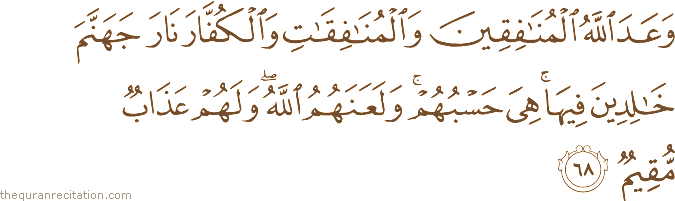 وَعَدَ ٱللَّهُ ٱلْمُنَـٰفِقِينَ وَٱلْمُنَـٰفِقَـٰتِ وَٱلْكُفَّارَ نَارَ جَهَنَّمَ
خَـٰلِدِينَ فِيهَا ۚ هِىَ حَسْبُهُمْ ۚ وَلَعَنَهُمُ ٱللَّهُ ۖ وَلَهُمْ عَذَابٌ
مُّقِيمٌ ٦٨
thequranrecitation.com